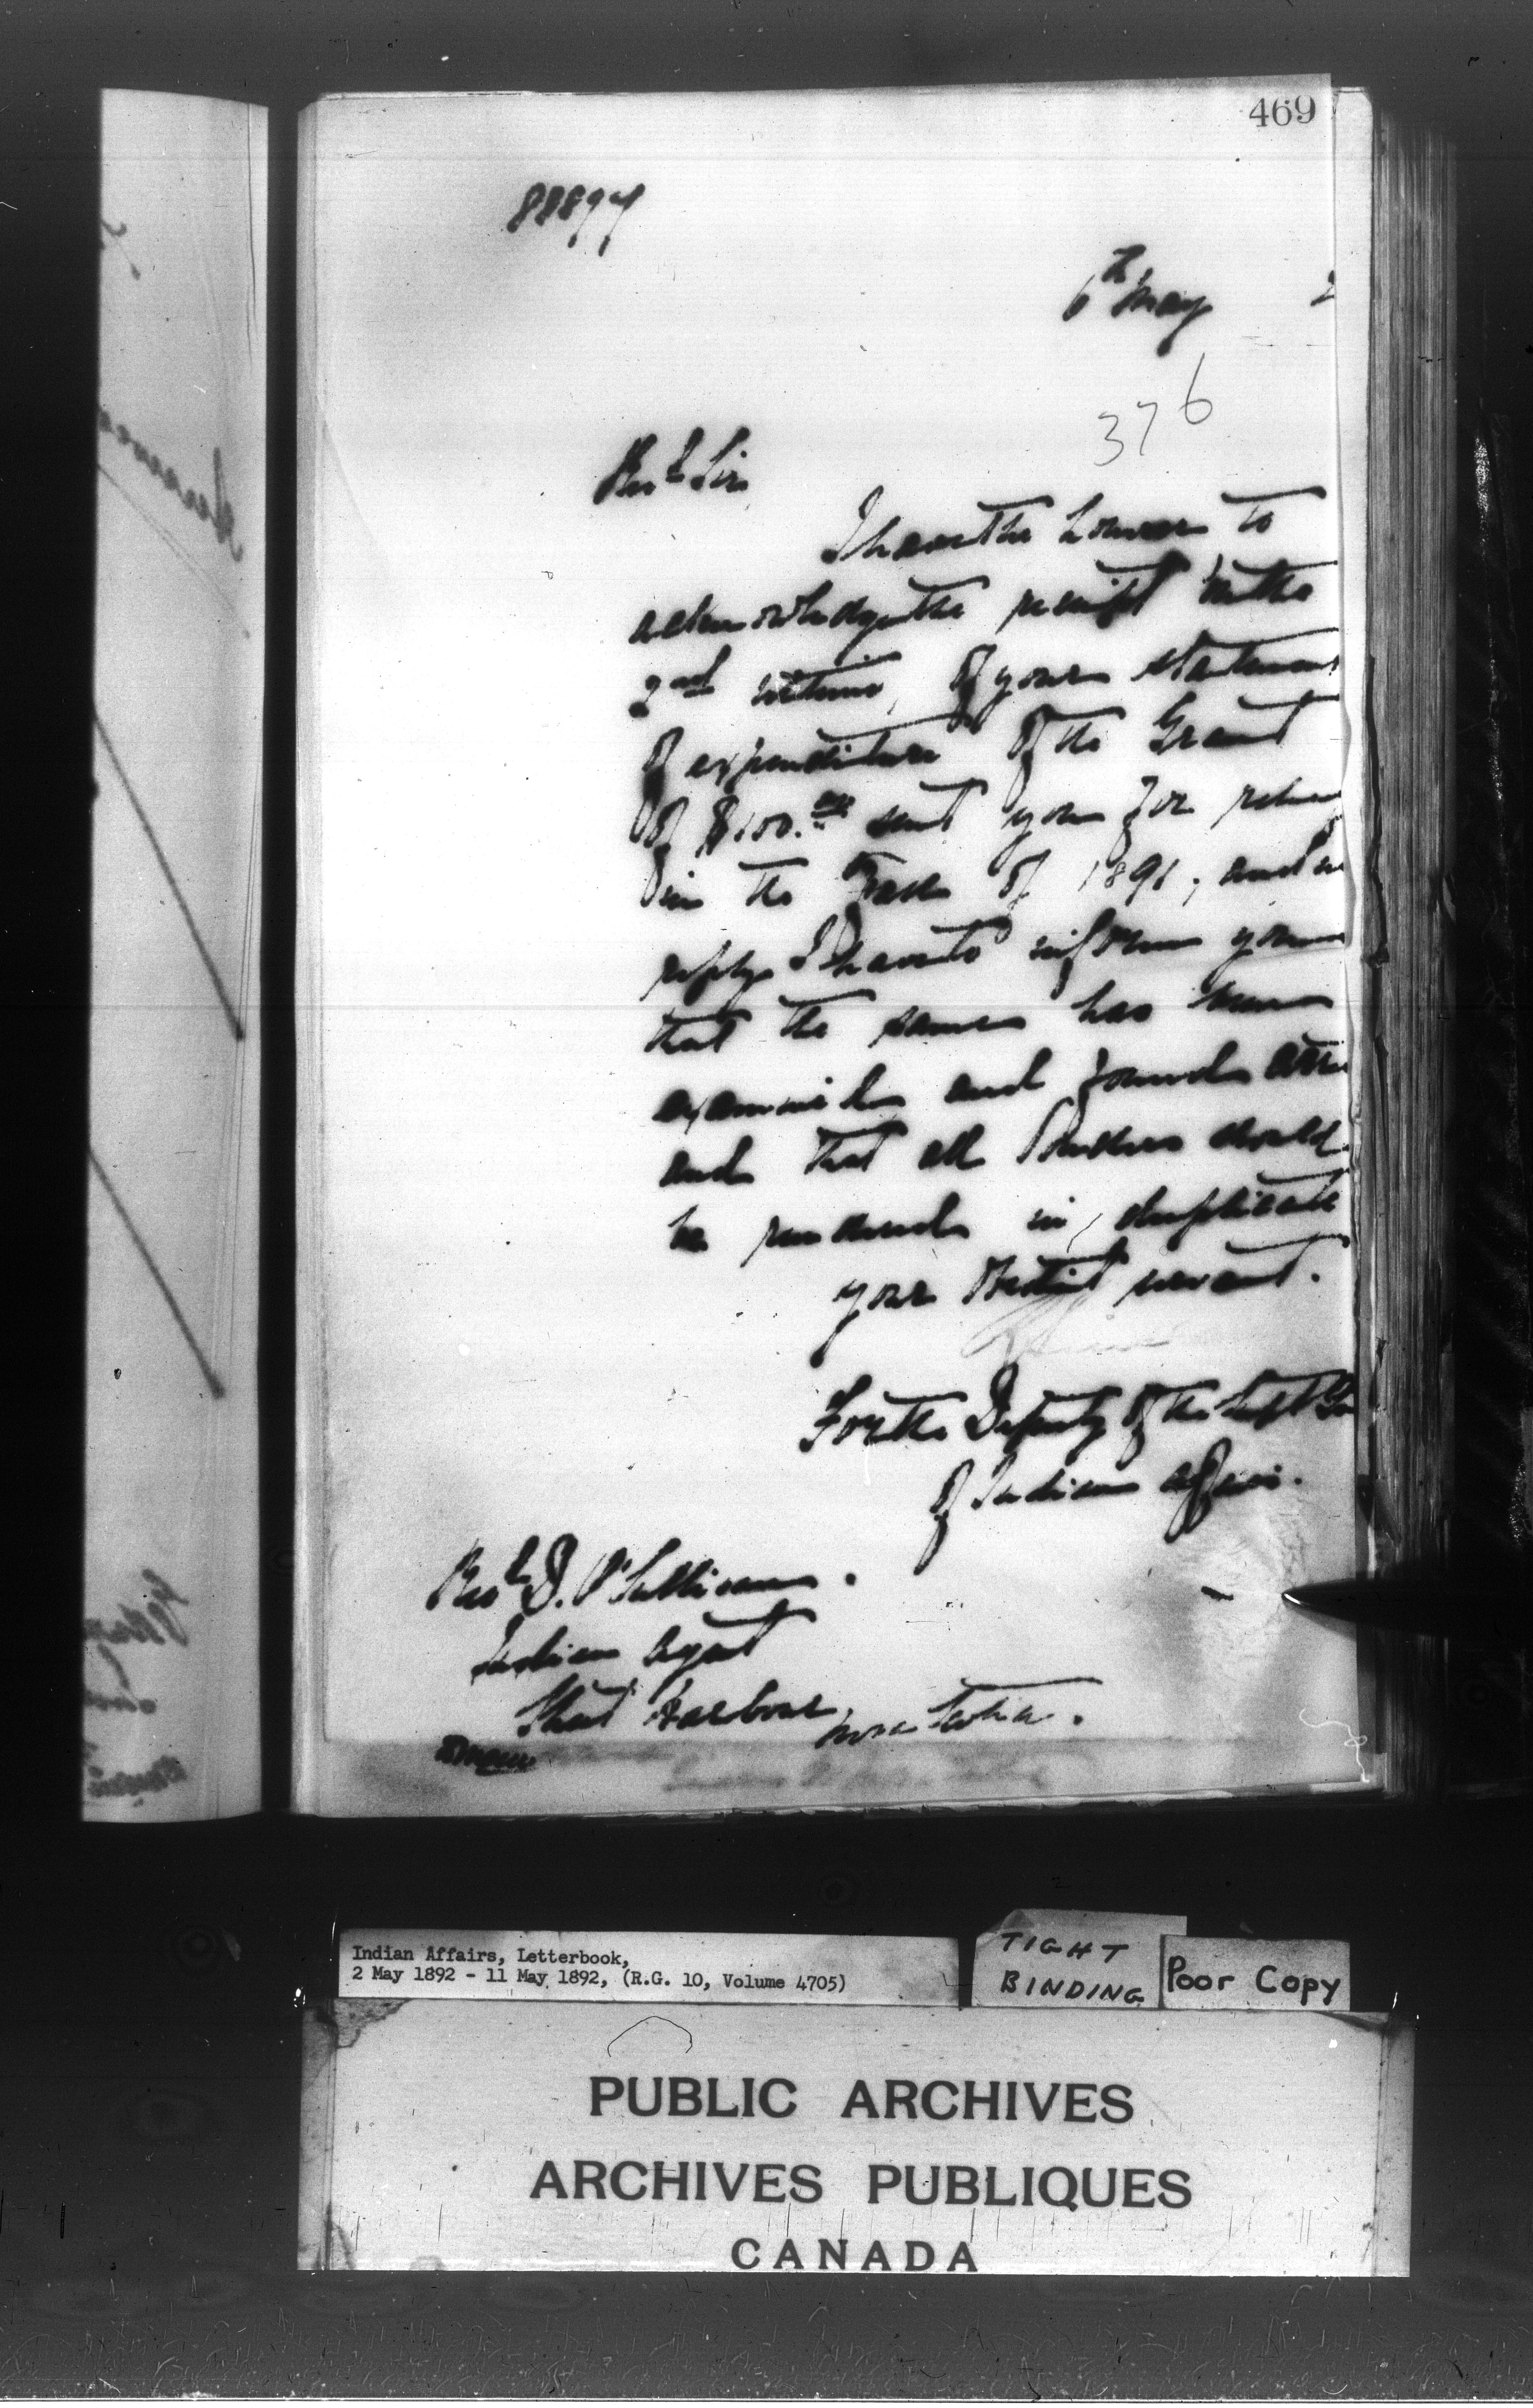 469
88897
6th May 2
376
Revd Sir
I have the honour to
acknowledge the receipt on the
2nd ultimo, of your statement
of expenditure of the Grant
of $100.00 sent you for relief
in the Fall of 1891, and in
reply I have to inform you
that the same has been
examined and found
and that all should
be rendered in duplicate
your obedient servant.
For the Deputy of the Supt Gen
of Indian Affairs.
Revd D. O'Sullivan.
Indian Agent
Sheet Harbour,
Nova Scotia.
Indian Affairs, Letterbook,
2 May 1892 - 11 May 1892, (R.G. 10, Volume 4705)
TIGHT
BINDING
Poor Copy
PUBLIC ARCHIVES
ARCHIVES PUBLIQUES
CANADA